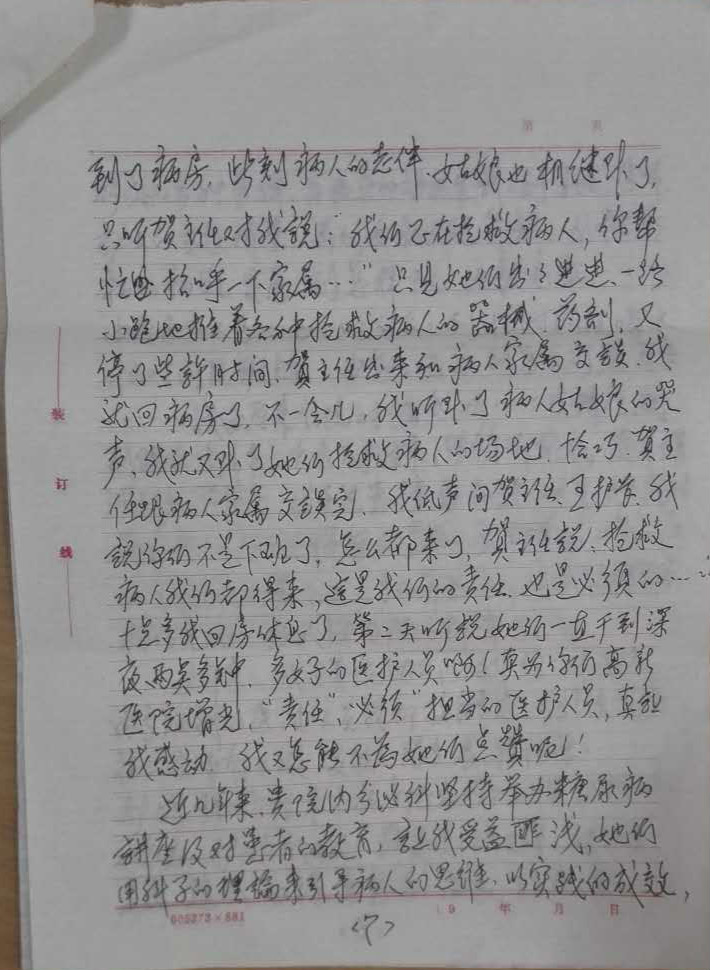 第 页
到了病房，此刻病人的老伴、姑娘也相继到了，
只听贺主任对我説：“我们正在抢救病人，你帮
忙招呼一下家属…”只见她们出出进进、一路
小跑地推着各种抢救病人的器械、药剂，又
停了些許时间，贺主任出来和病人家属交談，我
就回病房了，不一会儿，我听到了病人姑娘的哭
声，我就又到了她们抢救病人的场地，恰巧，贺主
任跟病人家属交談完，我低声问贺主任、王护长，我
説你们不是下班了，怎么都来了，贺主任説，抢救
病人我们都得来，这是我们的责任，也是必须的…
十点多我回房休息了，第二天听説她们一直干到深
夜两点多钟，多好的医护人员啊！真为你们高新
医院增光，“责任”、“必须”担当的医护人员，真让
我感动，我又怎能不為她们点赞呢！
近几年来，贵院内分泌科坚持举办糖尿病
讲座及对患者的教育，让我受益匪浅，她们
用科学的理論来引导病人的思维，以实践的成效，
装
订
线
年 月 日
<7>